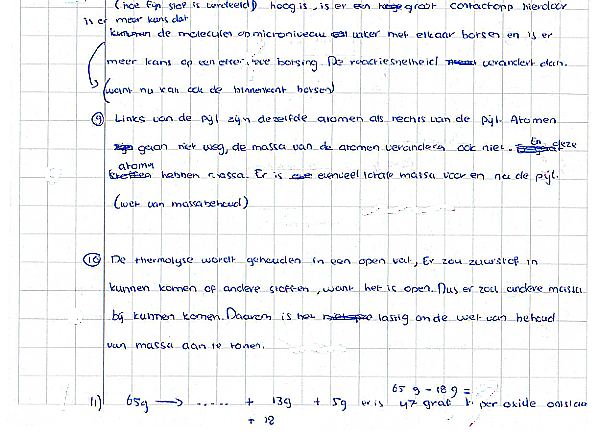 (hoe fijn stof is verdeeld) hoog is, is er een groot contactopp hierdoor
is er meer kans dat
kunnen de moleculen op microniveau vaker met elkaar botsen en is er
meer kans op een effectieve botsing. De reactiesnelheid verandert dan.
(want nu kan ook de binnenkant botsen)
9 Links van de pijl zijn dezelfde atomen als rechts van de pijl. Atomen
gaan niet weg, de massa van de atomen veranderen ook niet. En deze
atomen
hebben massa. Er is evenveel totale massa voor en na de pijl.
(wet van massabehoud)
10 De thermolyse wordt gehouden in een open vat, Er zou zuurstof in
kunnen komen of andere stoffen, want het is open. Dus er zou andere massa
bij kunnen komen. Daarom is het lastig om de wet van behoud
van massa aan te tonen.
65 g - 18 g =
11) 65g → ..... + 13g + 5g er is 47 gram per oxide ontstaan
+ 18